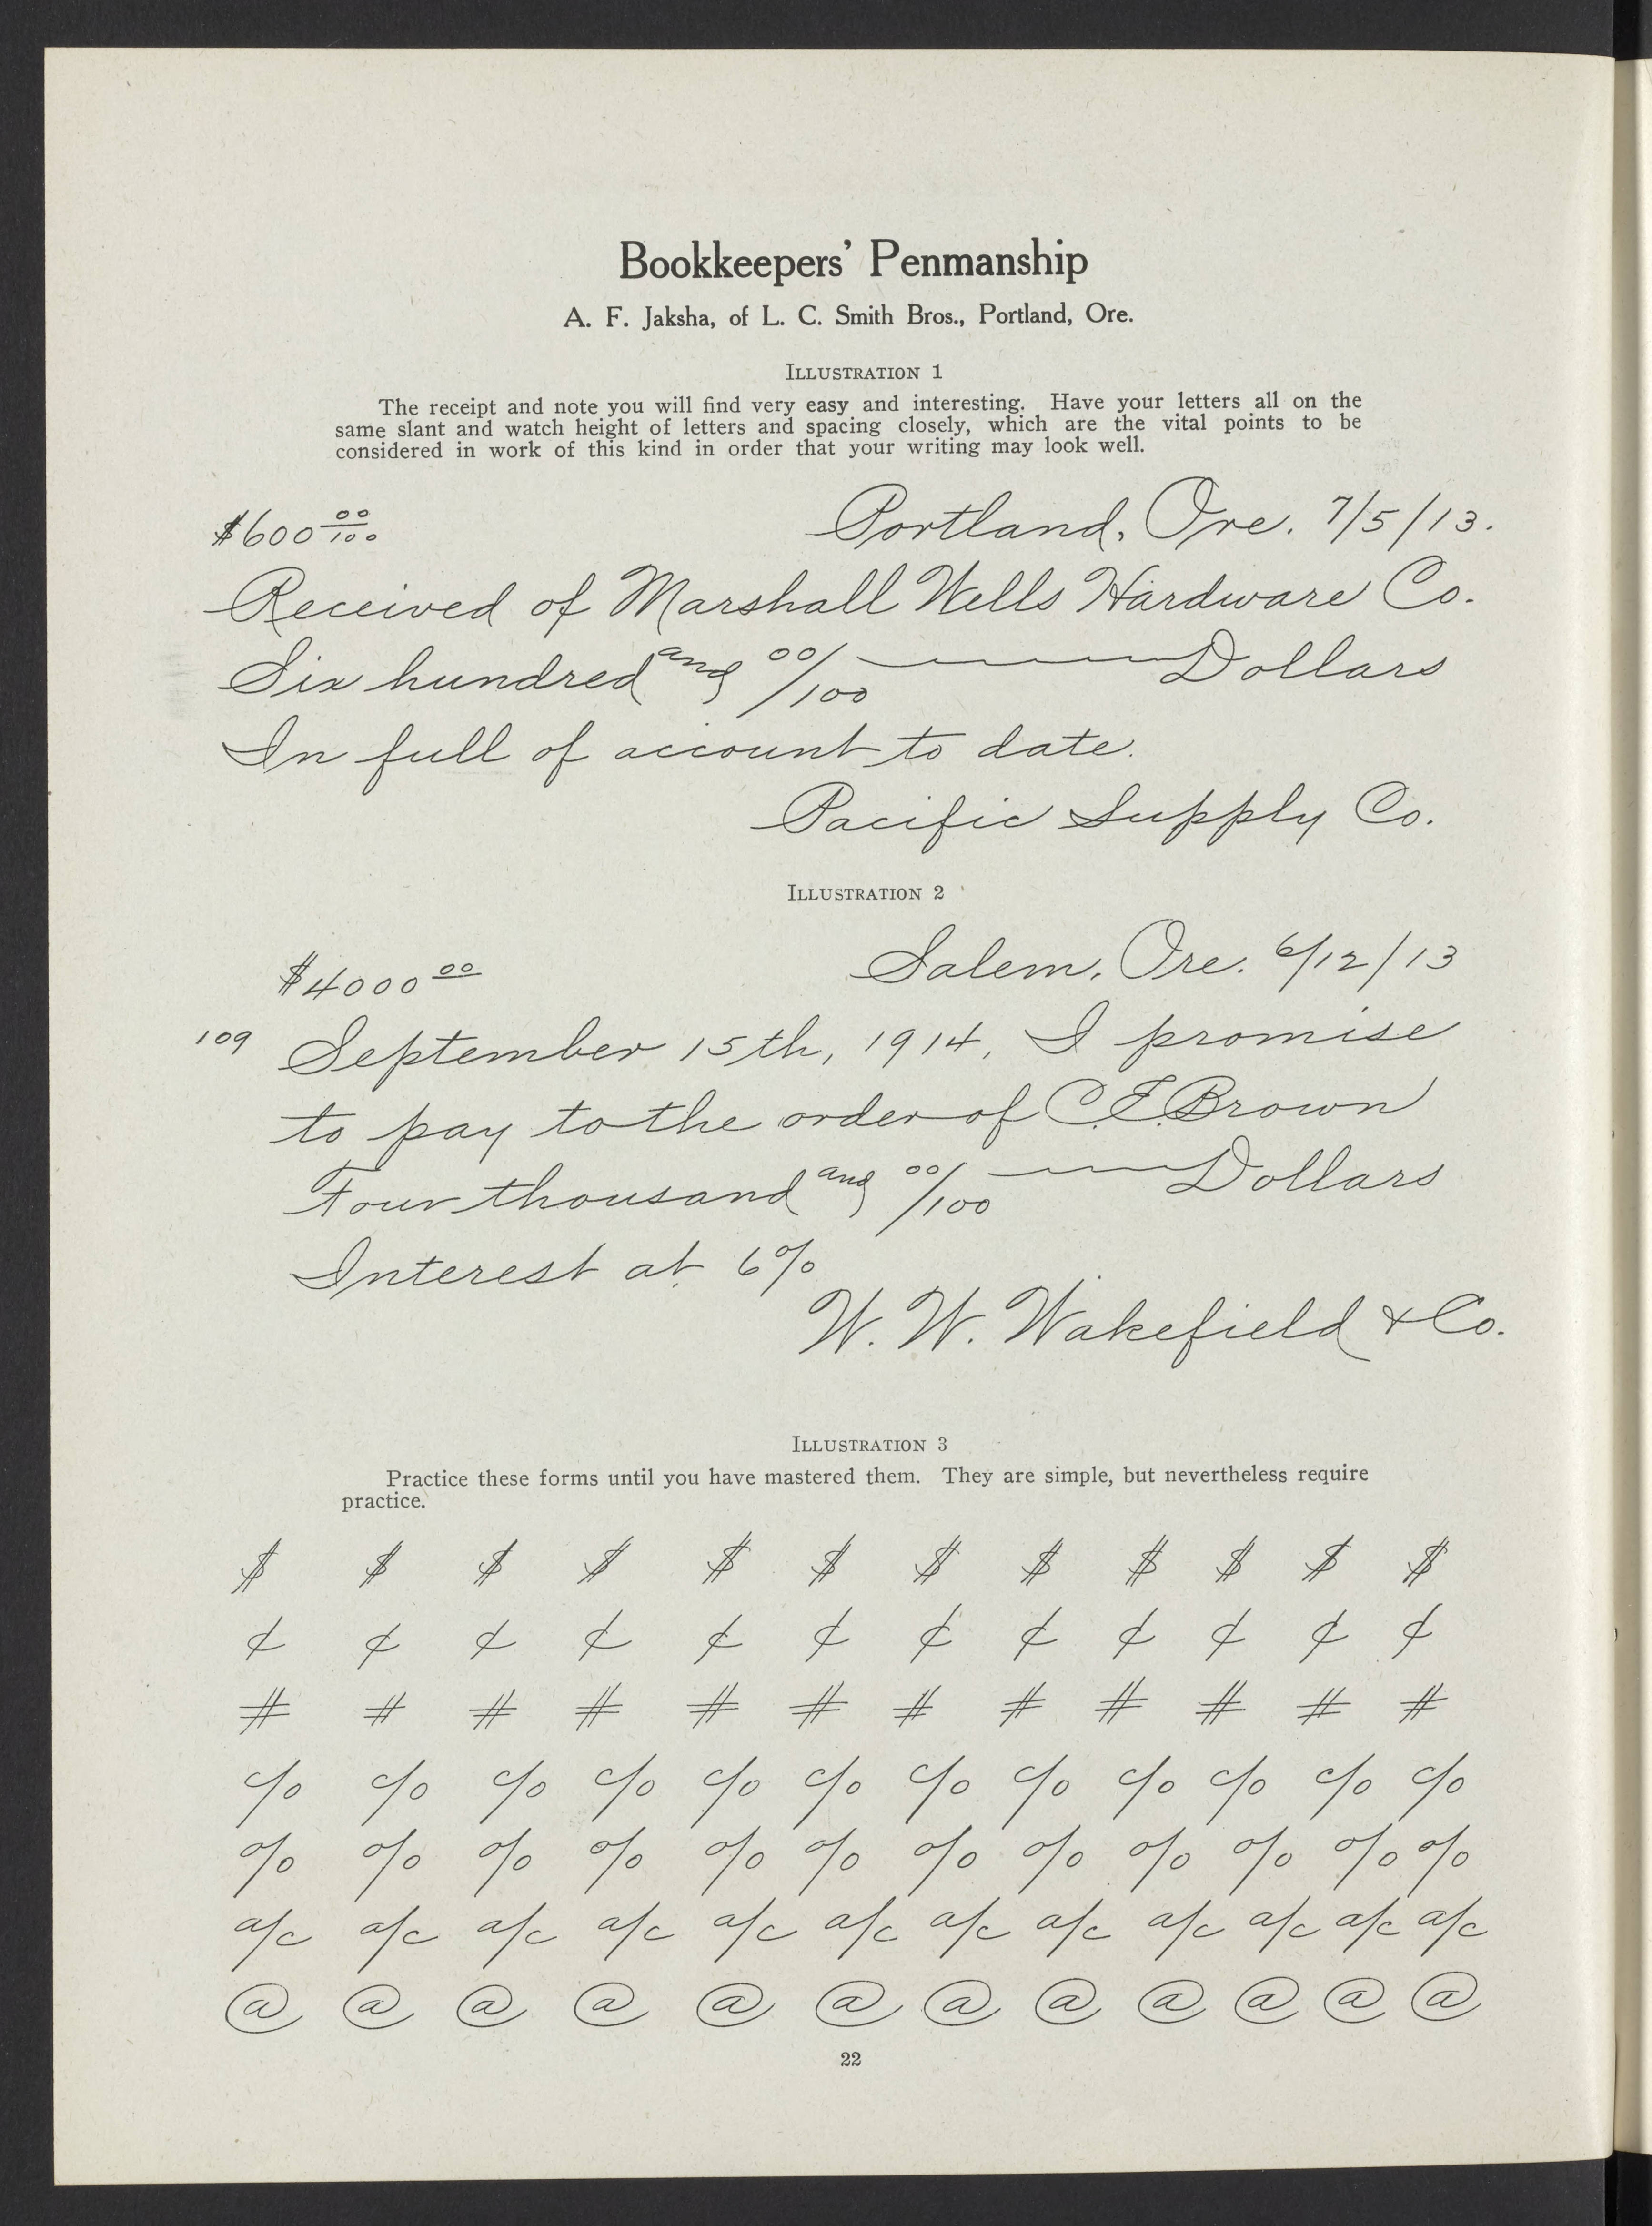 Bookkeepers' Penmanship
A. F. Jaksha, of L. C. Smith Bros., Portland, Ore.
Illustration 1
The receipt and note you will find very easy and interesting. Have your letters all on the
same slant and watch height of letters and spacing closely, which are the vital points to be
considered in work of this kind in order that your writing may look well.
$600 00/100 Portland, Ore. 7/5/13.
Received of Marshall Wells Hardware Co.
Six hundred and 00/100 Dollars
In full of account to date.
Pacific Supply Co.
Illustration 2
$4000 00 Salem, Ore. 6/12/13
109 September 15th, 1914, I promise
to pay to the order of C.E. Brown
Four thousand and 00/100 Dollars
Interest at 6%
W. W. Wakefield & Co.
Illustration 3
Practice these forms until you have mastered them. They are simple, but nevertheless require
practice.
$ $ $ $ $ $ $ $ $ $ $ $
¢ ¢ ¢ ¢ ¢ ¢ ¢ ¢ ¢ ¢ ¢ ¢
# # # # # # # # # # # #
c/o c/o c/o c/o c/o c/o c/o c/o c/o c/o c/o c/o
% % % % % % % % % % % %
a/c a/c a/c a/c a/c a/c a/c a/c a/c a/c a/c a/c
@ @ @ @ @ @ @ @ @ @ @ @
22